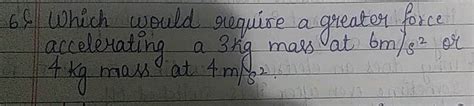 6. Which would require a greater force
accelerating a 3kg mass at 6m/s² or
4 kg mass at 4m/s².